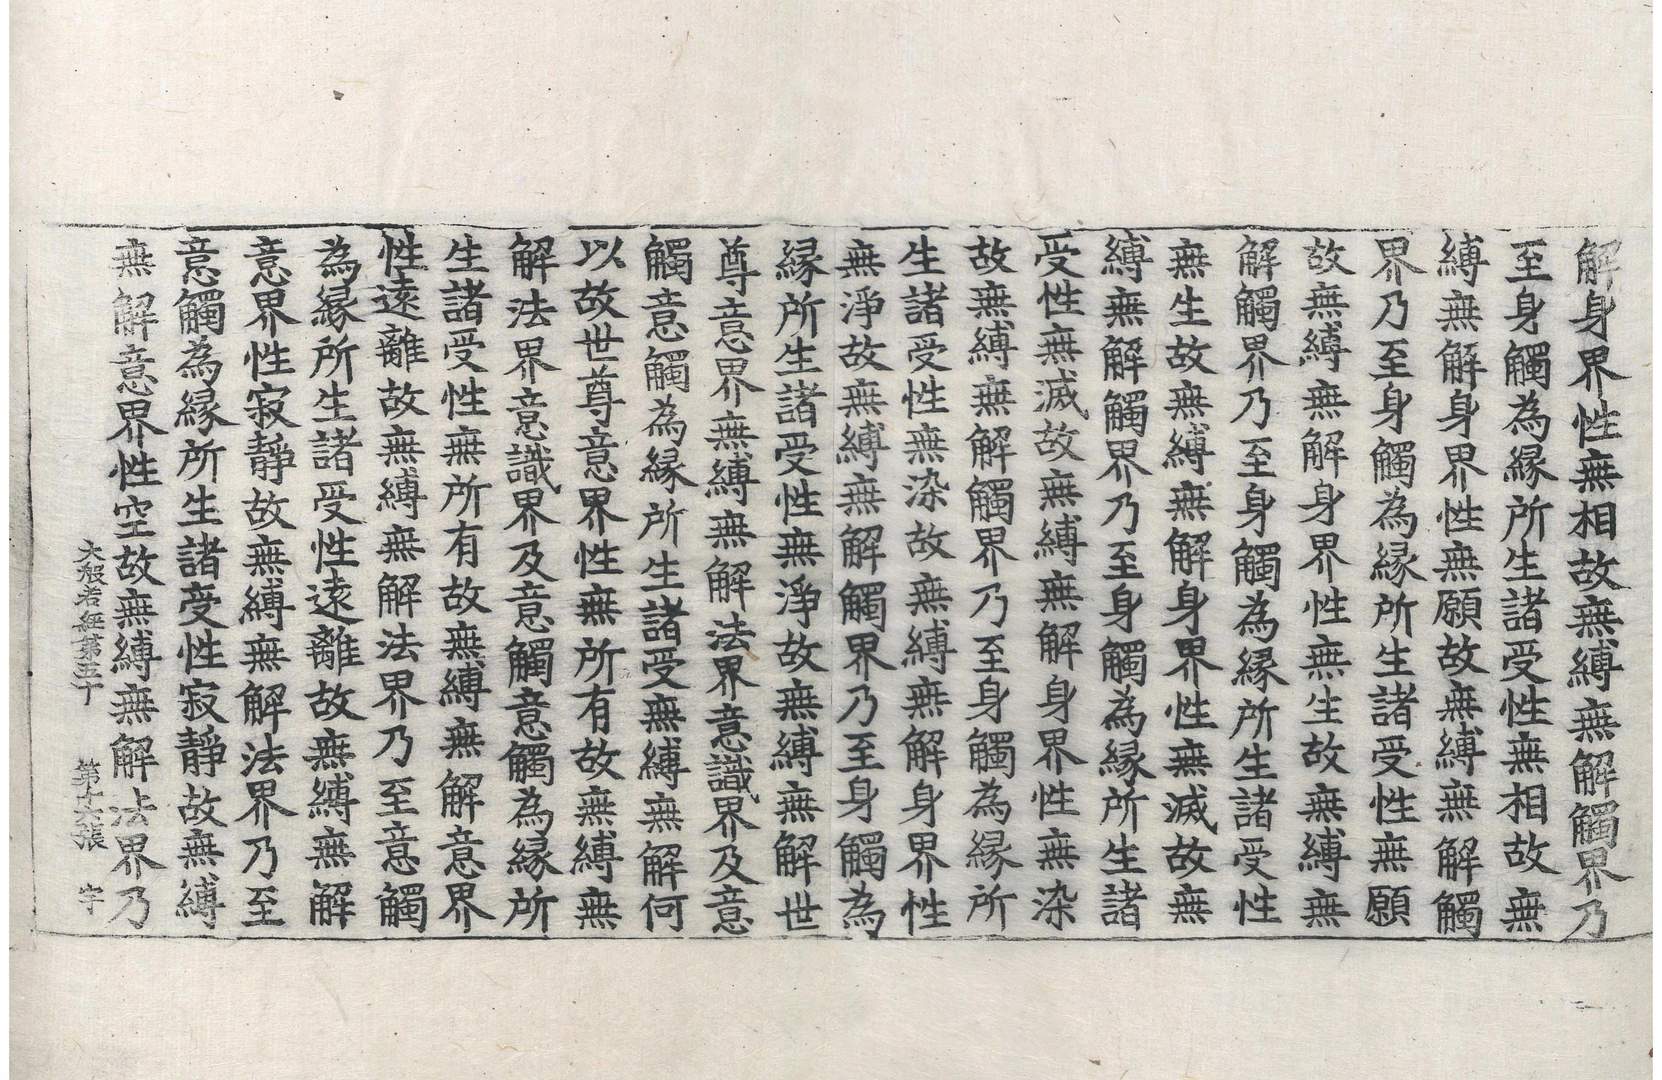 解身界性無相故無縛無解觸界乃
至身觸為縁所生諸受性無相故無
縛無解身界性無願故無縛無解觸
界乃至身觸為縁所生諸受性無願
故無縛無解身界性無生故無縛無
解觸界乃至身觸為縁所生諸受性
無生故無縛無解身界性無滅故無
縛無解觸界乃至身觸為縁所生諸
受性無滅故無縛無解身界性無染
故無縛無解觸界乃至身觸為縁所
生諸受性無染故無縛無解身界性
無淨故無縛無解觸界乃至身觸為
縁所生諸受性無淨故無縛無解世
尊意界無縛無解法界意識界及意
觸意觸為縁所生諸受無縛無解何
以故世尊意界性無所有故無縛無
解法界意識界及意觸意觸為縁所
生諸受性無所有故無縛無解意界
性遠離故無縛無解法界乃至意觸
為縁所生諸受性遠離故無縛無解
意界性寂靜故無縛無解法界乃至
意觸為縁所生諸受性寂靜故無縛
無解意界性空故無縛無解法界乃
大般若經第五十　第十六張　字